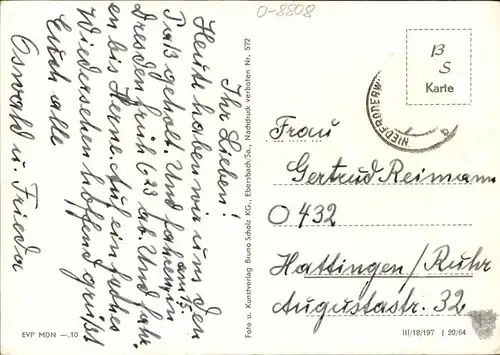 O-8808
Ihr Lieben!
Heute haben wir uns den
Paß geholt. Und fahren in
am 15.
Dresden früh 6,23 ab. Und fahr.
en bis Herne. Auf ein frohes
Wiedersehen hoffend grüßt
Euch alle
Oswald u. Frieda
EVP MDN —.10
Foto u. Kunstverlag Bruno Scholz KG., Ebersbach/Sa., Nachdruck verboten Nr. 572
B
S
Karte
NIEDERODERW
a
Frau
Gertrud Reimann
O 432
Hattingen/Ruhr
Augustastr. 32
III/18/197 J 20/64